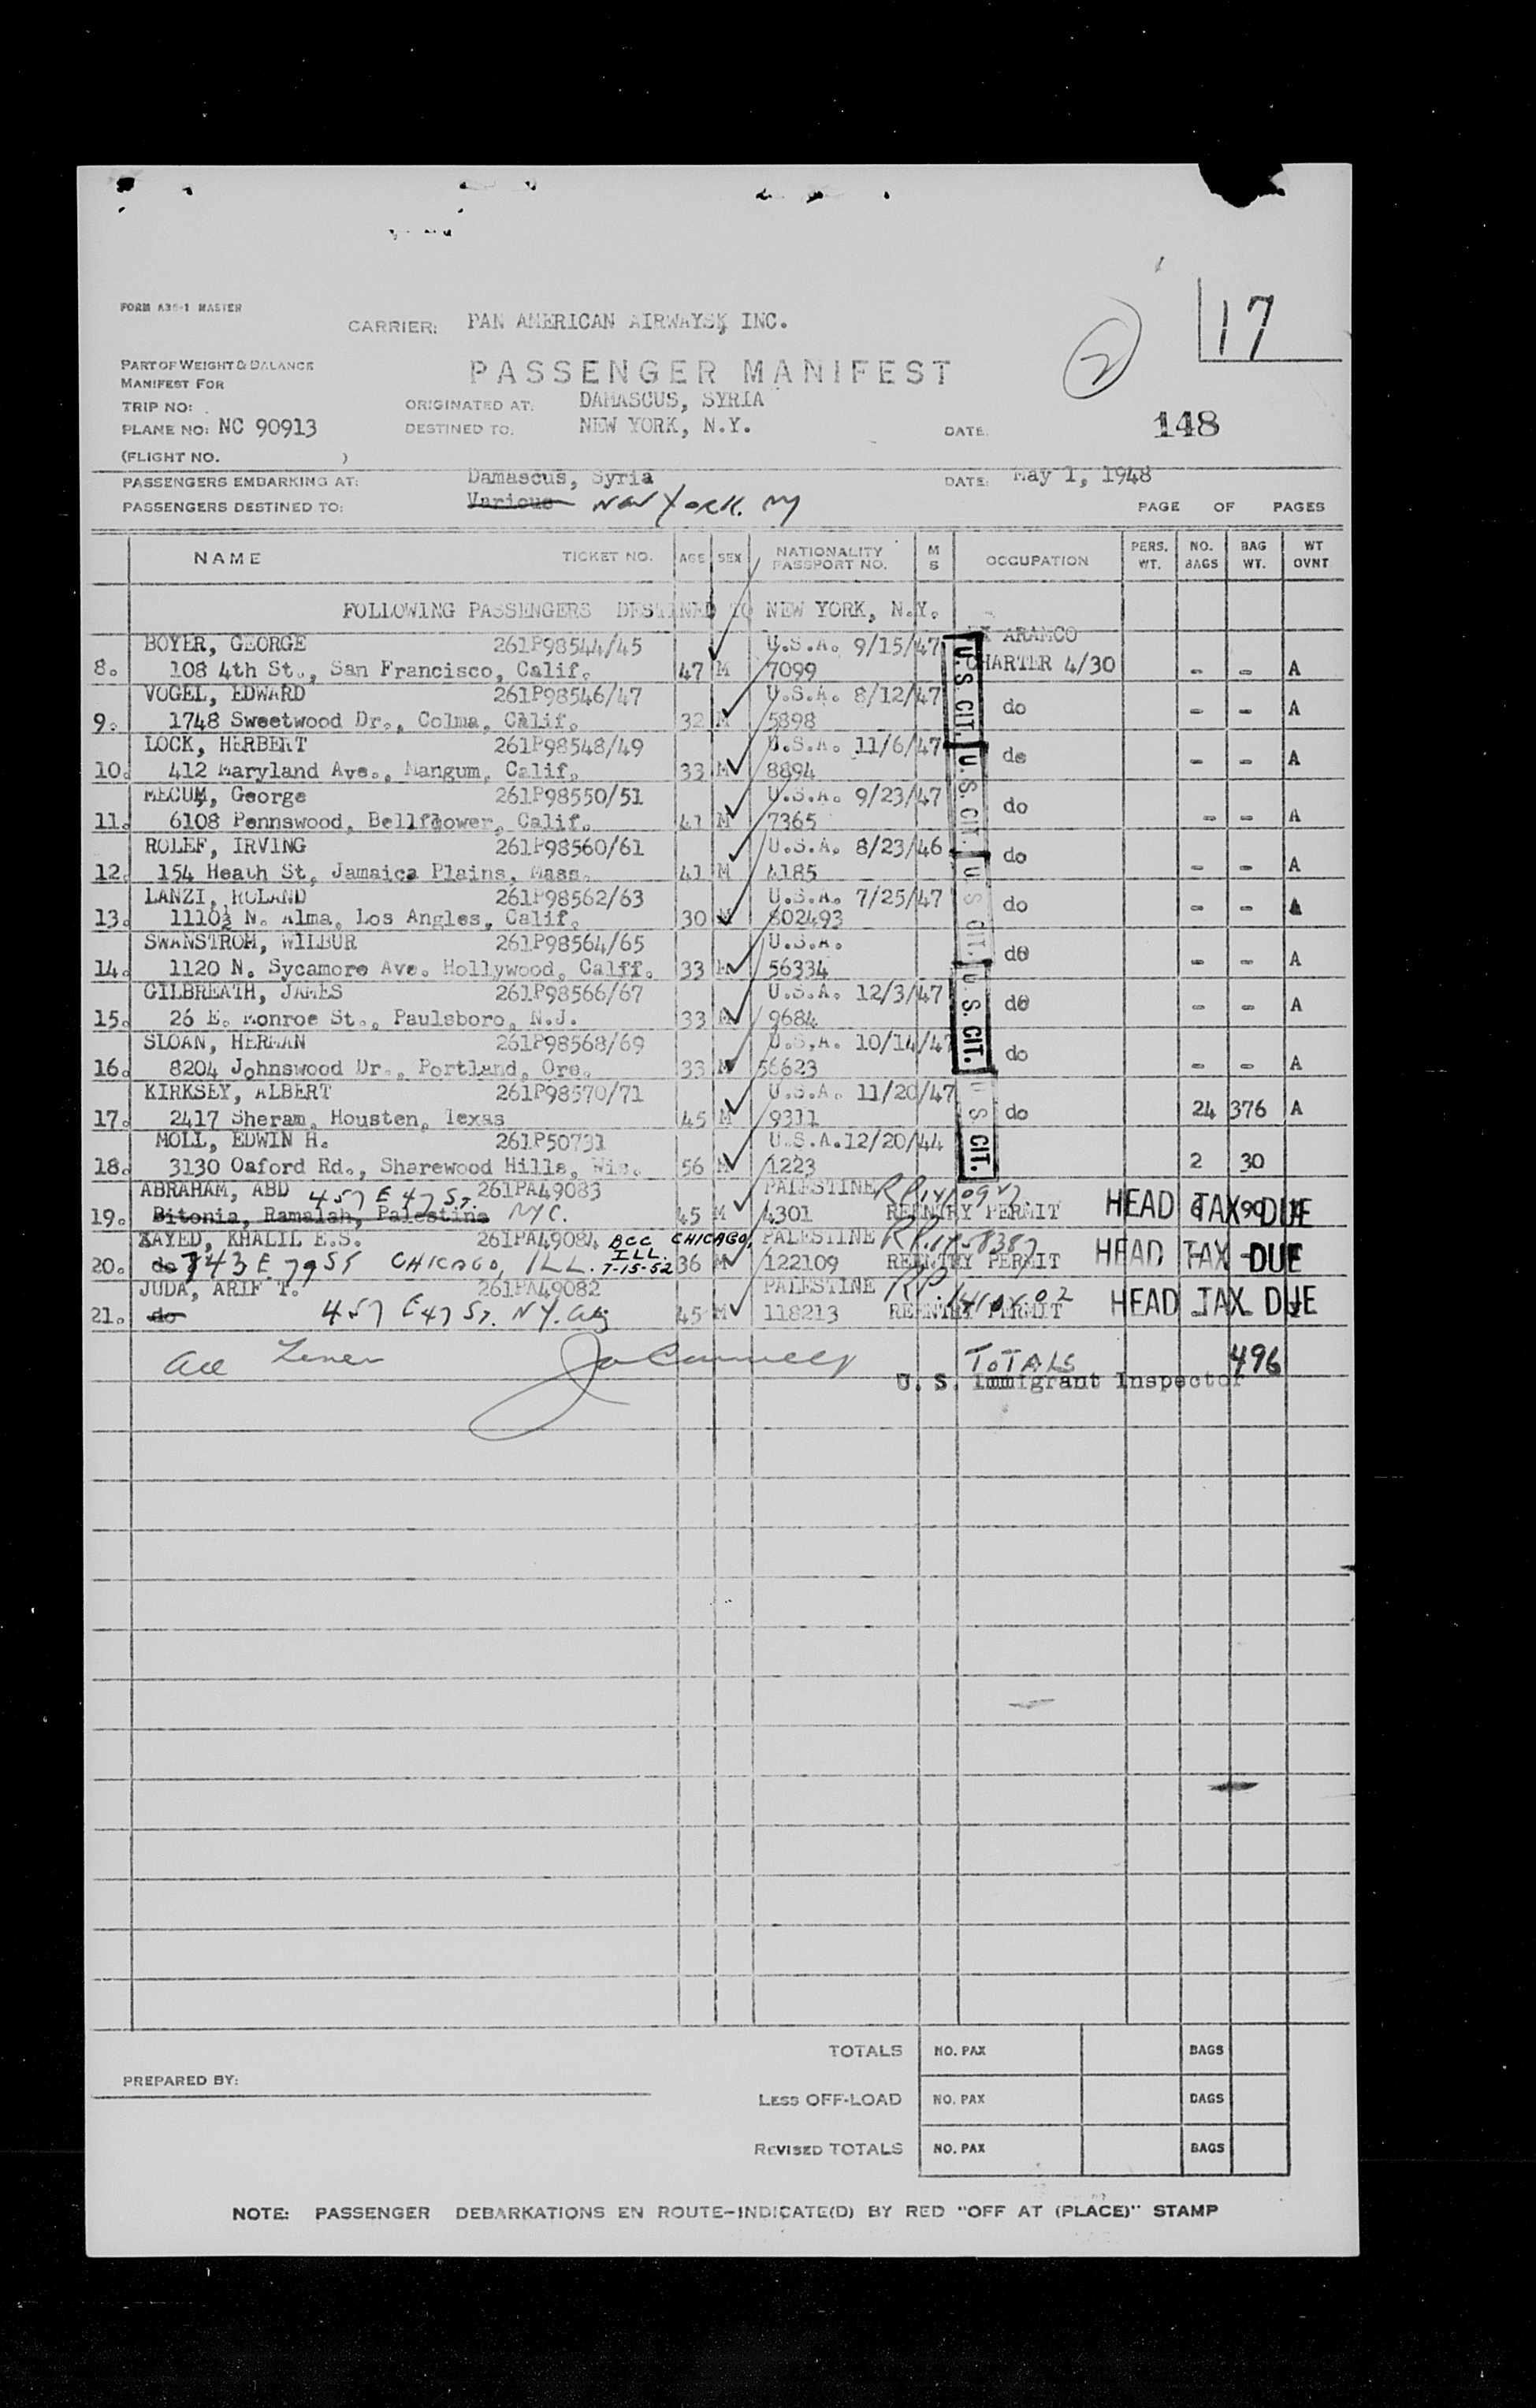 17
2
FORM A36-1 MASTER
CARRIER: PAN AMERICAN AIRWAYS, INC.
PART OF WEIGHT & BALANCE
MANIFEST FOR
PASSENGER MANIFEST
TRIP NO:
ORIGINATED AT: DAMASCUS, SYRIA
PLANE NO: NC 90913
DESTINED TO: NEW YORK, N.Y.
DATE: 148
(FLIGHT NO. )
PASSENGERS EMBARKING AT: Damascus, Syria DATE: May 1, 1948
PASSENGERS DESTINED TO: Various New York. NY PAGE OF PAGES
NAME TICKET NO. AGE SEX NATIONALITY PASSPORT NO. M S OCCUPATION PERS. WT. NO. BAGS BAG WT. WT OVNT
FOLLOWING PASSENGERS DESTINED TO NEW YORK, N.Y.
BOYER, GEORGE 261P98544/45 U.S.A. 9/15/47 EX ARAMCO
8. 108 4th St., San Francisco, Calif. 47 M 7099 CHARTER 4/30 - - A
VOGEL, EDWARD 261P98546/47 U.S.A. 8/12/47
9. 1748 Sweetwood Dr., Colma, Calif. 32 M 5898 do - - A
LOCK, HERBERT 261P98548/49 U.S.A. 11/6/47
10. 412 Maryland Ave., Mangum, Calif. 33 M 8894 do - - A
MECUM, George 261P98550/51 U.S.A. 9/23/47
11. 6108 Pennswood, Bellflower, Calif. 41 M 7365 do - - A
ROLEF, IRVING 261P98560/61 U.S.A. 8/23/46
12. 154 Heath St, Jamaica Plains, Mass. 41 M 4185 do - - A
LANZI, ROLAND 261P98562/63 U.S.A. 7/25/47
13. 1110½ N. Alma, Los Angles, Calif. 30 M 802493 do - - A
SWANSTROM, WILBUR 261P98564/65 U.S.A.
14. 1120 N. Sycamore Ave. Hollywood, Calff. 33 M 56334 do - - A
GILBREATH, JAMES 261P98566/67 U.S.A. 12/3/47
15. 26 E. Monroe St., Paulsboro, N.J. 33 M 9684 do - - A
SLOAN, HERMAN 261P98568/69 U.S.A. 10/14/47
16. 8204 Johnswood Dr., Portland, Ore. 33 M 56623 do - - A
KIRKSEY, ALBERT 261P98570/71 U.S.A. 11/20/47
17. 2417 Sheram, Housten, Texas 45 M 9311 do 24 376 A
MOLL, EDWIN H. 261P50731 U.S.A. 12/20/44
18. 3130 Oaford Rd., Sharewood Hills, Wis. 56 M 1223 2 30
U.S. CIT. U.S. CIT. U S CIT. U.S. CIT. U S CIT.
ABRAHAM, ABD 457 E 47 St. 261PA49083 PALESTINE
19. Bitonia, Ramalah, Palestine NYC. 45 M 4301 REENTRY PERMIT HEAD TAX DUE 90
ZAYED, KHALIL E.S. 261PA49084 BCC CHICAGO, ILL. 7-15-52 PALESTINE
20. do 743 E 79 St CHICAGO, ILL. 36 M 122109 REENTRY PERMIT HEAD TAX DUE
JUDA, ARIF T. 261PA49082 PALESTINE
21. do 457 E 47 St. NY. 45 M 118213 REENTRY PERMIT HEAD TAX DUE
TOTALS 496
U. S. Immigrant Inspector
TOTALS NO. PAX BAGS
PREPARED BY:
LESS OFF-LOAD NO. PAX BAGS
REVISED TOTALS NO. PAX BAGS
NOTE: PASSENGER DEBARKATIONS EN ROUTE-INDICATE(D) BY RED "OFF AT (PLACE)" STAMP